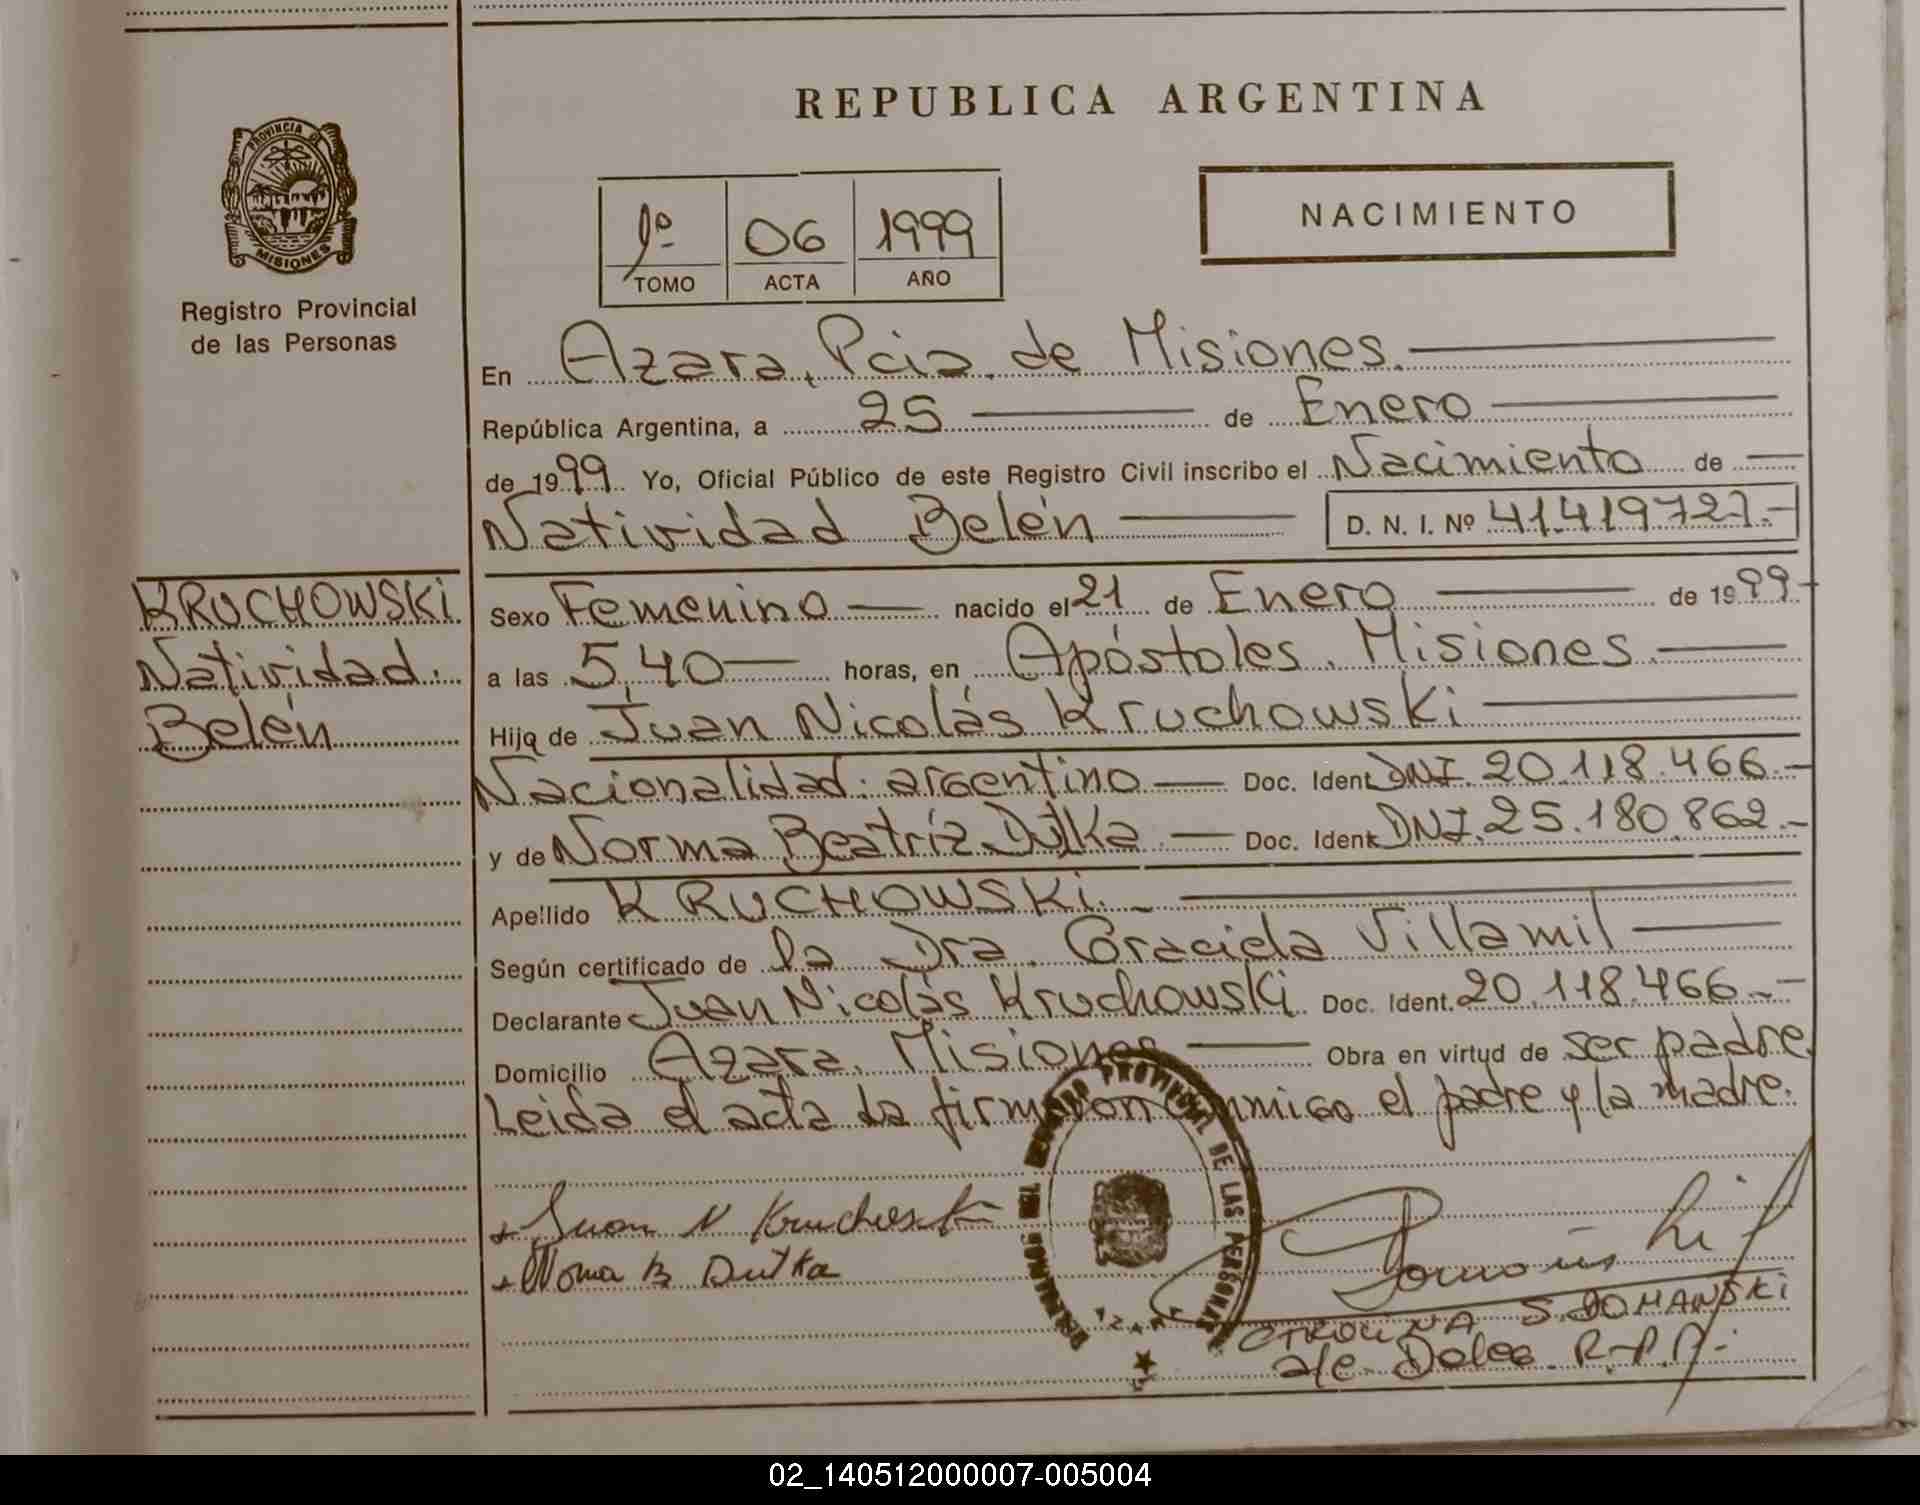 REPUBLICA ARGENTINA
PROVINCIA D
MISIONES
Registro Provincial
de las Personas
1º 06 1999
TOMO ACTA AÑO
NACIMIENTO
En Azara, Pcia. de Misiones.
República Argentina, a 25 de Enero
de 1999 Yo, Oficial Público de este Registro Civil inscribo el Nacimiento de
Natividad Belén D. N. I. Nº 41.419727.-
KRUCHOWSKi
Natividad.
Belén
Sexo Femenino nacido el 21 de Enero de 1999-
a las 5,40 horas, en Apóstoles. Misiones
Hija de Juan Nicolás Kruchowski
Nacionalidad: argentino Doc. Ident DNI. 20.118.466.-
y de Norma Beatríz Dutka Doc. Ident DNI. 25.180.862.-
Apellido KRUCHOWSKi.
Según certificado de la Dra. Graciela Villamil
Declarante Juan Nicolás Kruchowski Doc. Ident. 20.118.466.-
Domicilio Azara. Misiones Obra en virtud de ser padre.
Leida el acta la firmaron conmigo el padre y la madre.
REGISTRO PROVINCIAL DE LAS PERSONAS
Juan N Kruchowski
Norma B Dutka
S. DOMANSKi
a/c. Deleg. R.P.P.
02_140512000007-005004